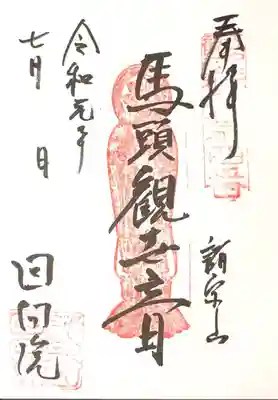 奉拝
馬頭観世音
令和元年
七月 日
回向院